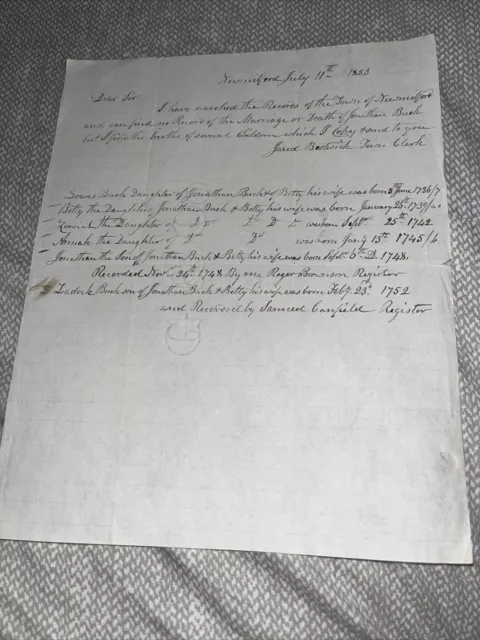 Newmilford July 11th 1853
Dear Sir
I have searched the Records of the Town of Newmilford
and can find no Record of the Marriage or Death of Jonathan Buck
but I find the births of several Children which I Copy & send to you
Jared Bostwick Town Clerk
Daughter of Jonathan Buck & Betty his wife was born 5th June 1736/7
Betty the Daughter Jonathan Buck & Betty his wife was born January 25th 1739/40
the Daughter of Do Do Do Do was born Septr 25th 1742
the Daughter of Do Do was born Jany 13th 1745/6
Jonathan the Son of Jonathan Buck & Betty his wife was born Septr 6th D. 1748
Recorded Novr 24th 1748 By me Roger Brownson Register
Zadock Buck son of Jonathan Buck & Betty his wife was born Feby 23d 1752
and Recorded by Samuel Canfield Register